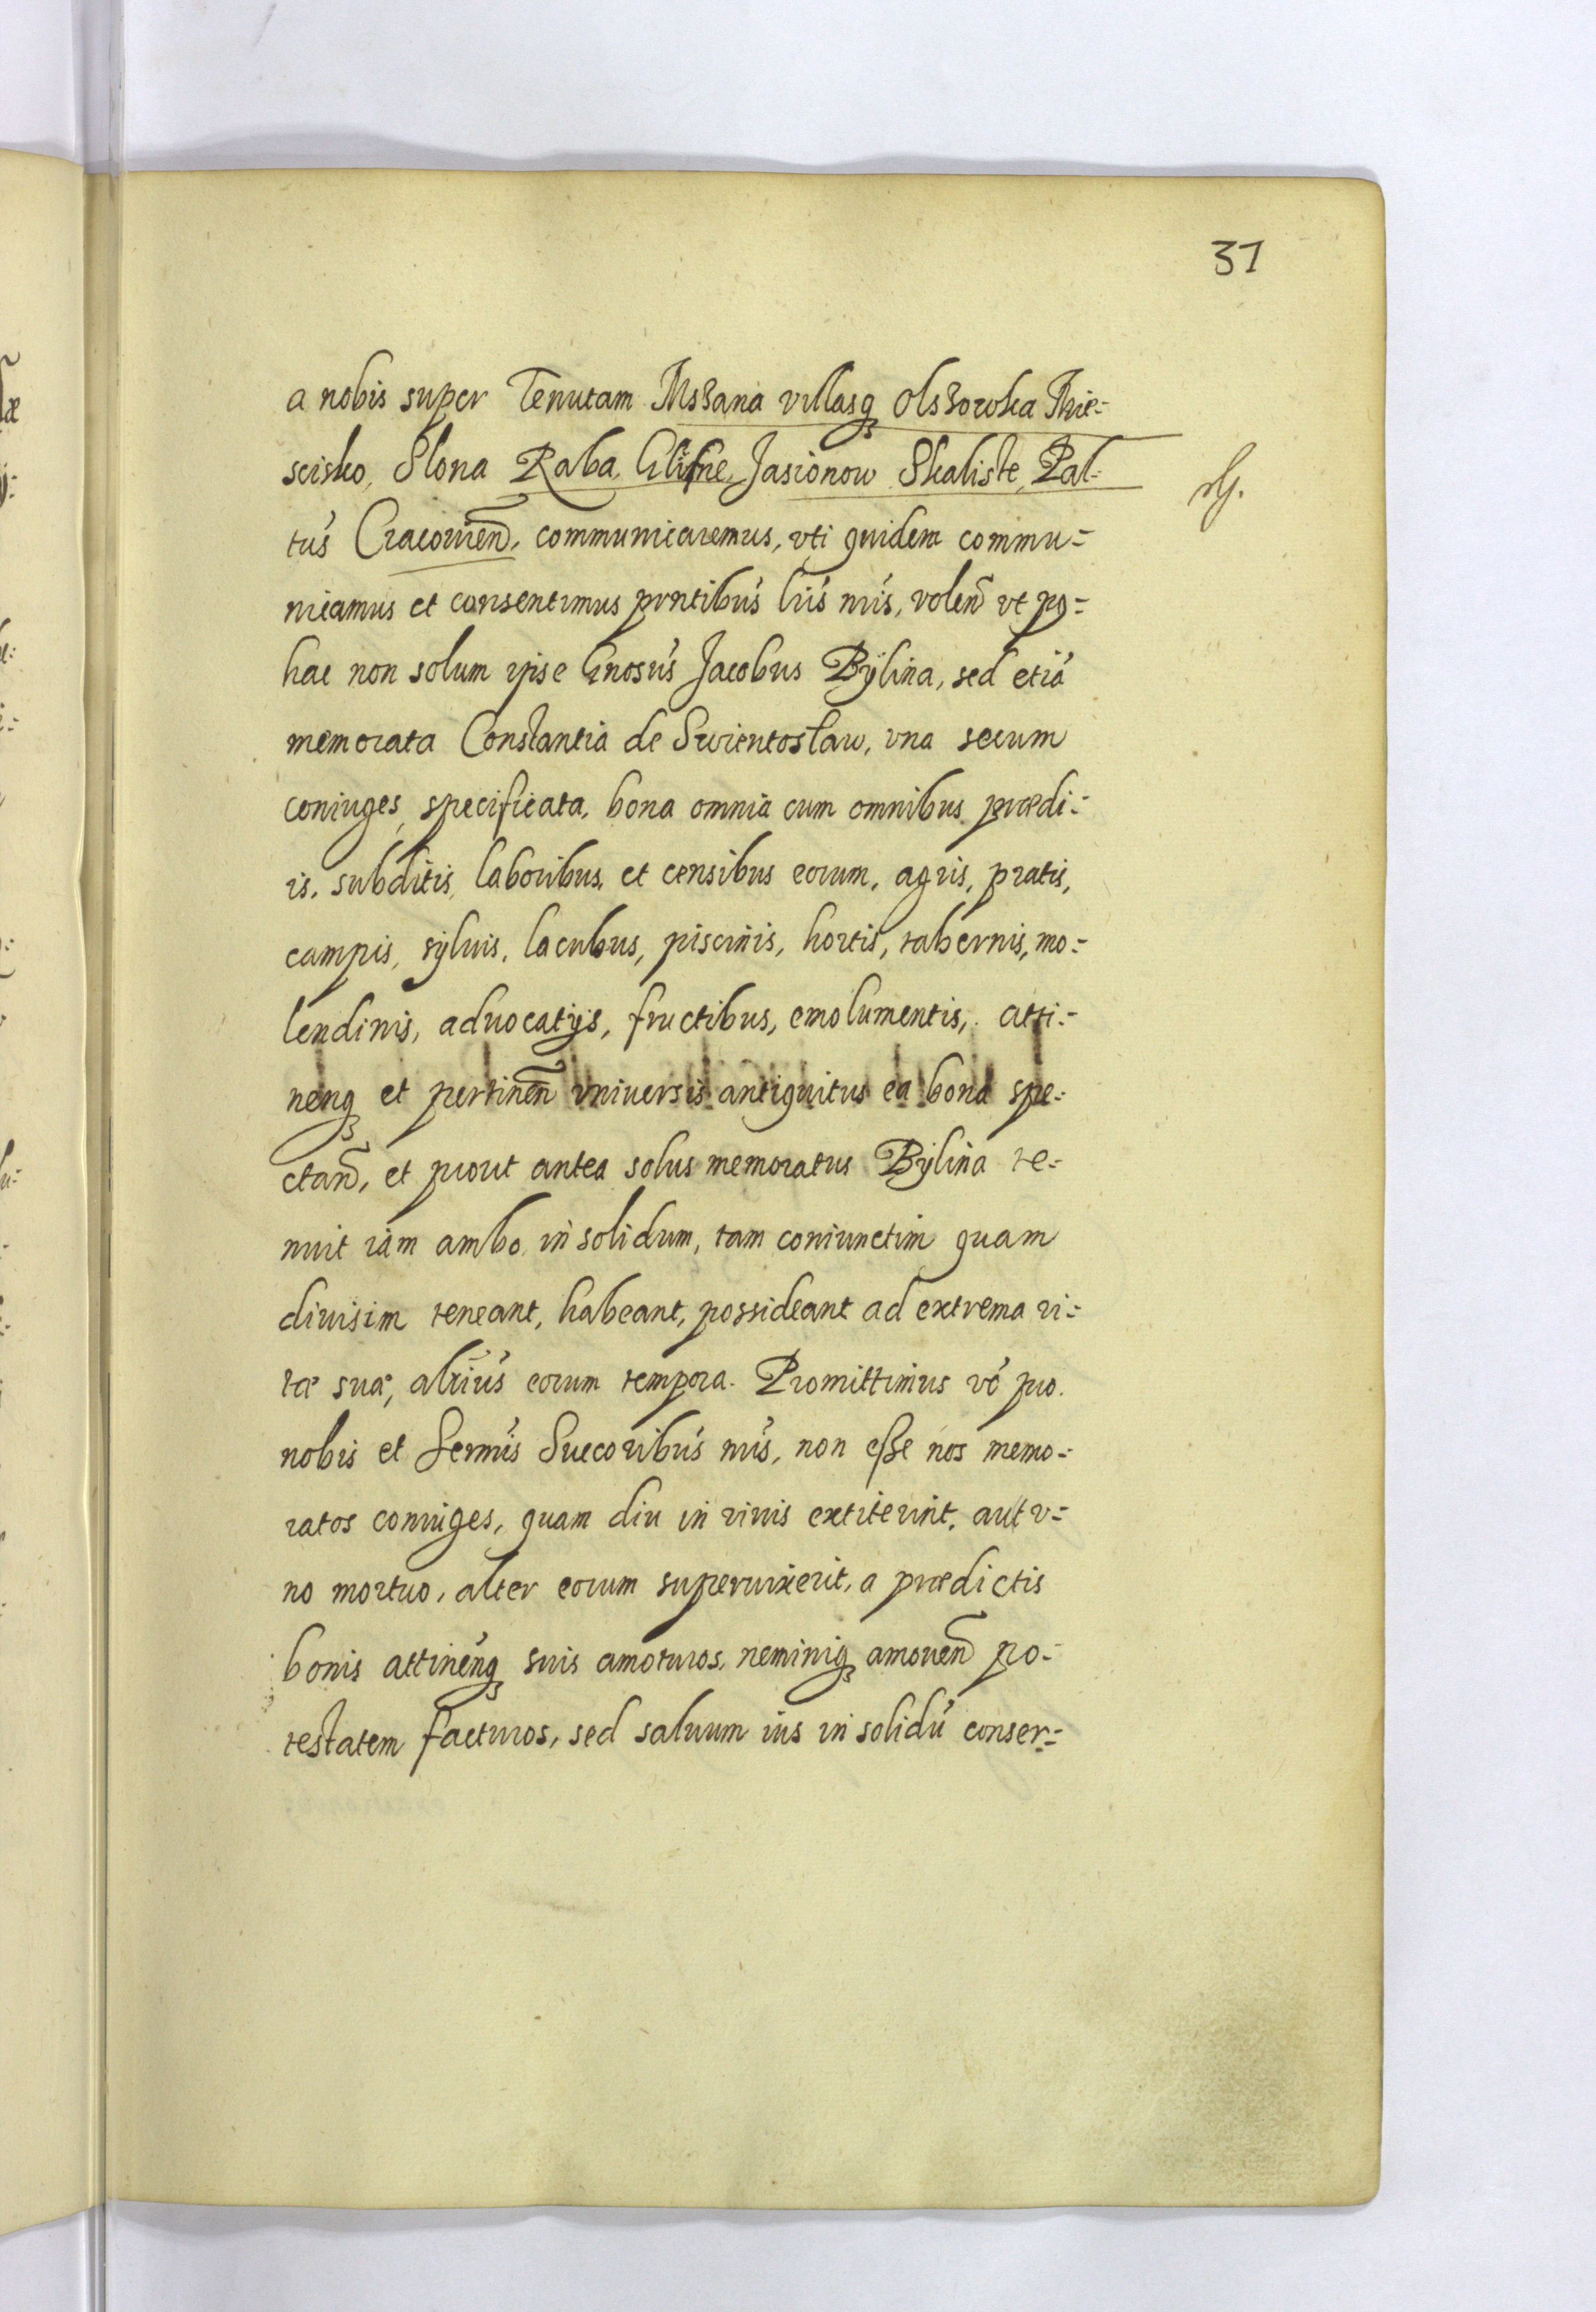 31
a nobis super Tenutam Mszana villasq3 Olszowka Mie=
scisko, Slona Raba, Glisne, Jasionow Skaliste, Pal-
tus Cracovien̄, communicaremus, vti quidem commu=
nicamus et consentimus pn̄tibus lr̄is nr̄is, volen̄ vt po=
hac non solum ipse Gnosus Jacobus Bÿlina, sed etiá
memorata Constantia de Swientosław, vna secum
coniuges, specificata, bona omnia cum omnibus prædi=
is, subditis, laboribus, et censibus eorum, agris, pratis,
campis, sÿluis, lacubus, piscinis, hortis, tabernis, mo=
lendinis, aduocatijs, fructibus, emolumentis, atti=
nenq3 et pertinen̄ vniuersis antiquitus ea bona spe=
ctan̄, et prout antea solus memoratus Bÿlina te=
nuit iam ambo in solidum, tam coniunctim quam
diuisim teneant, habeant, possideant ad extrema vi=
tæ suæ, altr̄ius eorum tempora. Promittimus vó pro
nobis et Sermis Succoribus nr̄is, non esse nos memo=
ratos coniuges, quam diu in viuis extiterint, aut v=
no mortuo, alter eorum superuixerit, a prædictis
bonis attinenq3 suis amoturos, neminiq3 amouen̄ po=
testatem facturos, sed saluum ius in solidú conser=